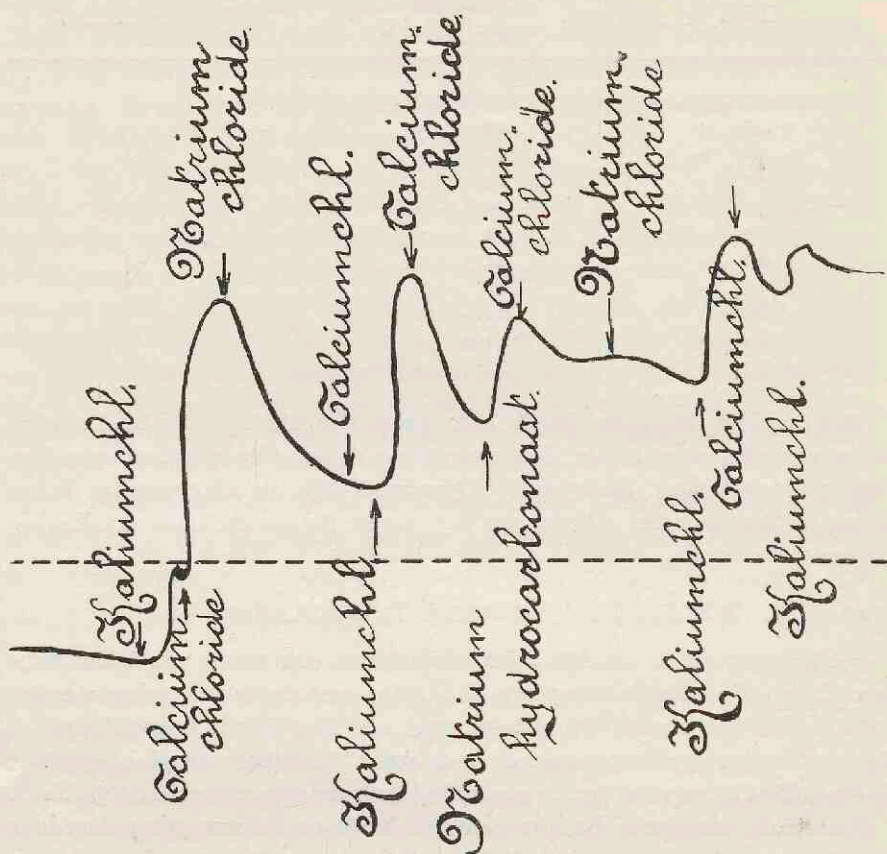 Kaliumchl.
Calcium
chloride
Natrium
chloride
Calciumchl.
Kaliumchl.
Calcium-
chloride
Natrium
hydrocarbonaat.
Calcium-
chloride.
Natrium-
chloride
Kaliumchl.
Calciumchl.
Kaliumchl.